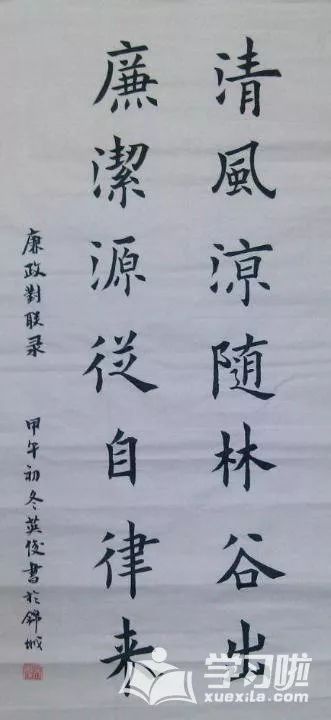 清風涼随林谷出
廉潔源從自律来
廉政對联录
甲午初冬英俊書於錦城
学习啦
xuexila.com